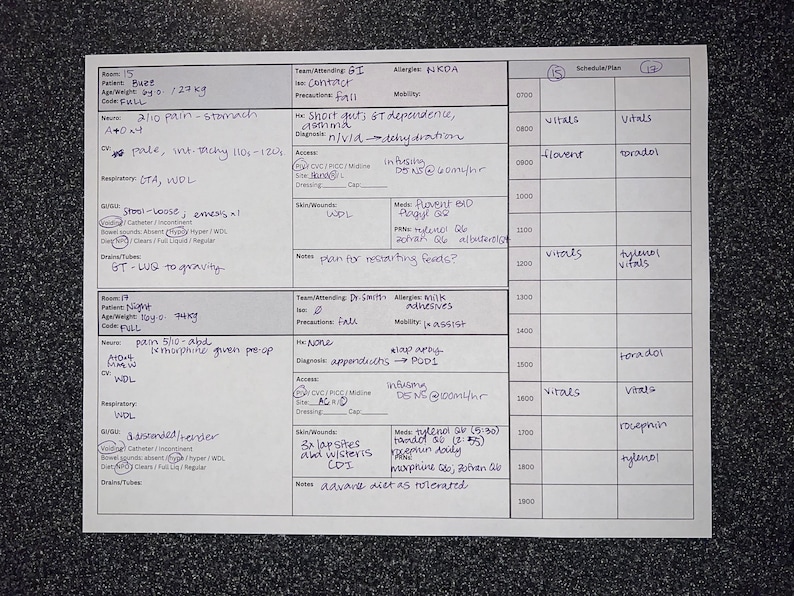 Room: 15
Patient: Buzz
Age/Weight: 6y.o. / 27kg
Code: FULL
Team/Attending: GI Allergies: NKDA
Iso: Contact
Precautions: fall Mobility:
Neuro: 2/10 pain - stomach
A+O x4
CV: pale, int. tachy 110s-120s
Respiratory: CTA, WDL
GI/GU: Stool-loose; emesis x1
Voiding / Catheter / Incontinent
Bowel sounds: Absent / Hypo / Hyper / WDL
Diet: NPO / Clears / Full Liquid / Regular
Drains/Tubes:
GT - LUQ to gravity
Hx: Short gut; GT dependence,
asthma
Diagnosis: n/v/d → dehydration
Access:
PIV / CVC / PICC / Midline
Site: Hand R / L
Dressing: Cap:
infusing
D5NS @ 60ml/hr
Skin/Wounds:
WDL
Meds: flovent BID
flagyl Q8
PRNs: tylenol Q6
zofran Q6 albuterol Q4
Notes plan for restarting feeds?
Room: 17
Patient: Night
Age/Weight: 16y.o. 74kg
Code: FULL
Team/Attending: Dr. Smith Allergies: milk
adhesives
Iso: Ø
Precautions: fall Mobility: 1x assist
Neuro: pain 5/10 - abd
1x morphine given pre-op
A+O x4
MAEW
CV:
WDL
Respiratory:
WDL
GI/GU: distended/tender
Voiding / Catheter / Incontinent
Bowel sounds: absent / hypo / hyper / WDL
Diet: NPO / Clears / Full Liq / Regular
Drains/Tubes:
Hx: None
*lap appy
Diagnosis: appendicitis → POD1
Access:
PIV / CVC / PICC / Midline
Site: AC R / L
Dressing: Cap:
infusing
D5NS @ 100ml/hr
Skin/Wounds:
3x lap sites
abd w/steris
CDI
Meds: tylenol Q6 (5:30)
toradol Q6 (2:55)
rocephin daily
PRNs:
morphine Q6; zofran Q6
Notes advance diet as tolerated
Schedule/Plan
15 17
0700
0800 vitals vitals
0900 flovent toradol
1000
1100
1200 vitals tylenol
vitals
1300
1400
1500 toradol
1600 vitals vitals
1700 rocephin
1800 tylenol
1900